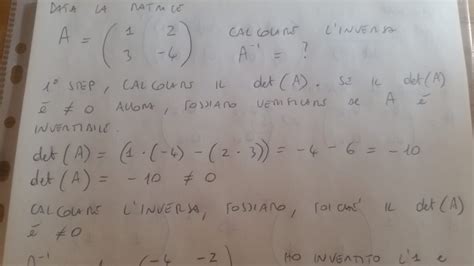 DATA LA MATRICE
A = ( 1 2 CALCOLARE L'INVERSA
3 -4 ) A⁻¹ = ?
1° STEP, CALCOLARE IL det(A). SE IL det(A)
È ≠ 0 ALLORA, POSSIAMO VERIFICARE SE A È
INVERTIBILE.
det(A) = (1·(-4) - (2·3)) = -4 - 6 = -10
det(A) = -10 ≠ 0
CALCOLARE L'INVERSA, POSSIAMO, POICHÉ IL det(A)
È ≠ 0
A⁻¹ 1 ( -4 -2 ) HO INVERTITO L'1 E